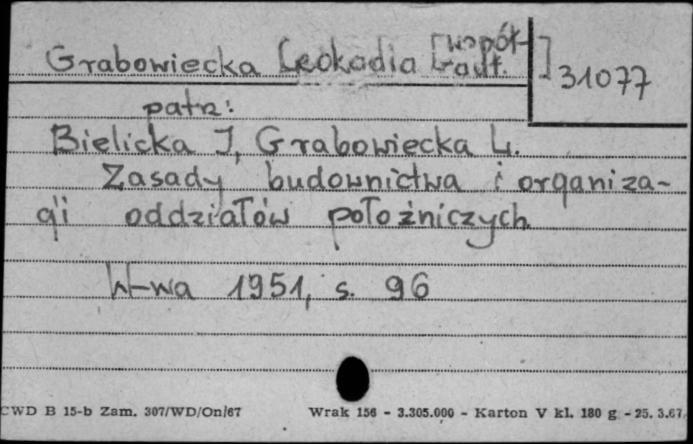 Grabowiecka Leokadia [współ-
aut.] 31077
patrz:
Bielicka J, Grabowiecka L.
Zasady budownictwa i organiza-
cji oddziałów położniczych
W-wa 1951, s. 96
CWD B 15-b Zam. 307/WD/On/67 Wrak 156 - 3.305.000 - Karton V kl. 180 g - 25. 3.67.